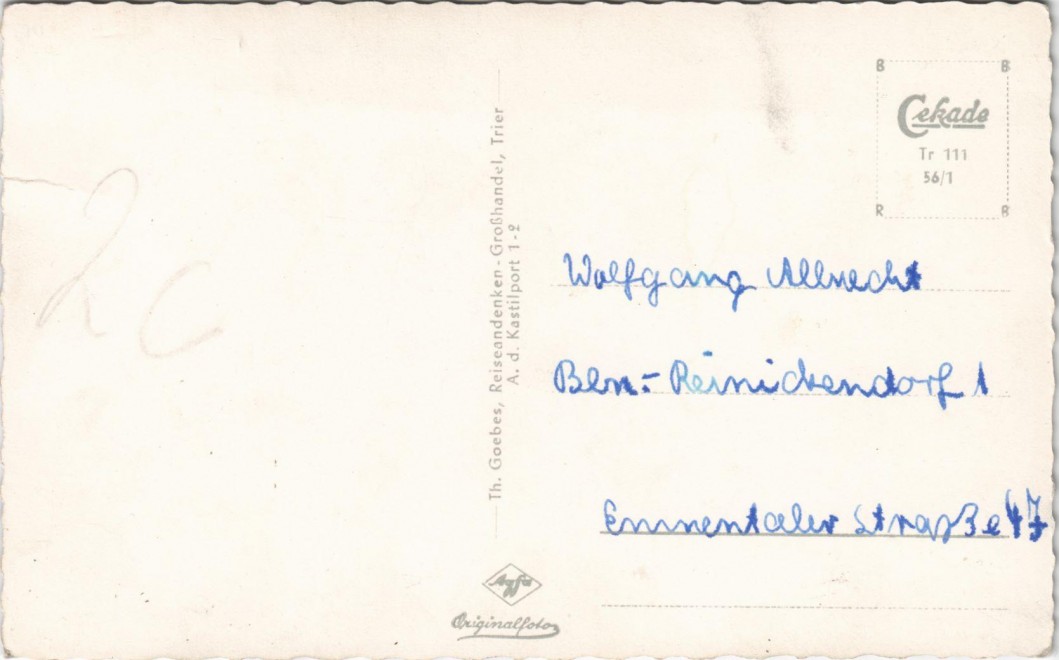 2c
Th. Goebes, Reiseandenken-Großhandel, Trier
A. d. Kastilport 1-2
B B
Cekade
Tr 111
56/1
R B
Wolfgang
Bln.- Reinickendorf 1
Emmentaler Straße 47
Agfa
Originalfoto